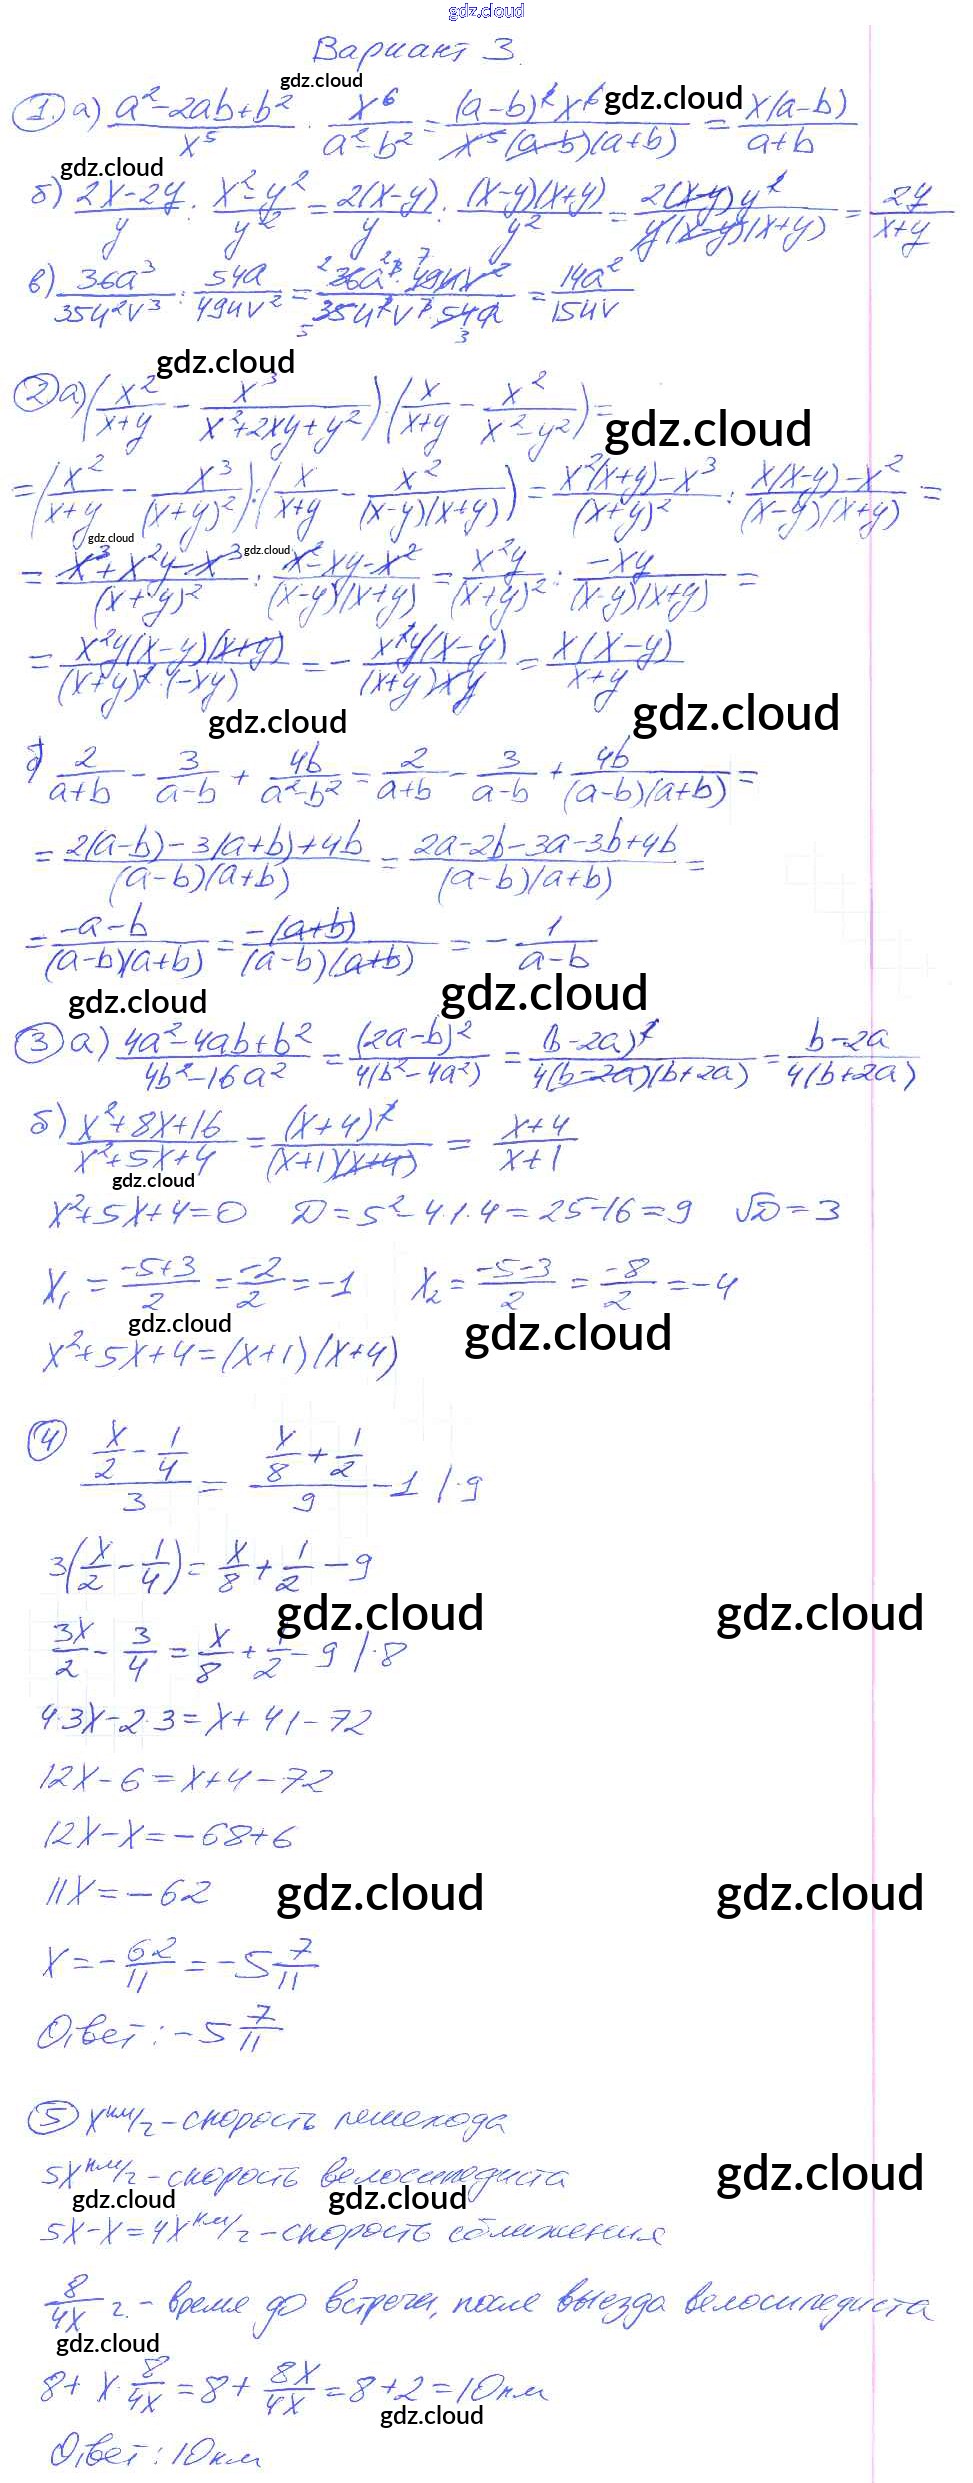 gdz.cloud
Вариант 3.
1. а) (a²-2ab+b²)/x⁵ · x⁶/(a²-b²) = ((a-b)²x⁶)/(x⁵(a-b)(a+b)) = x(a-b)/(a+b)
б) (2x-2y)/y : (x²-y²)/y² = 2(x-y)/y : (x-y)(x+y)/y² = 2(x-y)y²/(y(x-y)(x+y)) = 2y/(x+y)
в) 36a³/35u²v³ : 54a/49uv² = (36a³·49uv²)/(35u²v³·54a) = 14a²/15uv
gdz.cloud gdz.cloud gdz.cloud gdz.cloud
2 а) (x²/(x+y) - x³/(x²+2xy+y²)) : (x/(x+y) - x²/(x²-y²)) =
gdz.cloud
= (x²/(x+y) - x³/(x+y)²) : (x/(x+y) - x²/((x-y)(x+y))) = (x²(x+y)-x³)/(x+y)² : (x(x-y)-x²)/((x-y)(x+y)) =
gdz.cloud gdz.cloud
= (x³+x²y-x³)/(x+y)² : (x²-xy-x²)/((x-y)(x+y)) = x²y/(x+y)² : -xy/((x-y)(x+y)) =
= x²y(x-y)(x+y)/((x+y)²·(-xy)) = - x²y(x-y)/((x+y)xy) = x(x-y)/(x+y)
gdz.cloud gdz.cloud
б) 2/(a+b) - 3/(a-b) + 4b/(a²-b²) = 2/(a+b) - 3/(a-b) + 4b/((a-b)(a+b)) =
= (2(a-b)-3(a+b)+4b)/((a-b)(a+b)) = (2a-2b-3a-3b+4b)/((a-b)(a+b)) =
= (-a-b)/((a-b)(a+b)) = -(a+b)/((a-b)(a+b)) = - 1/(a-b)
gdz.cloud gdz.cloud
3 а) (4a²-4ab+b²)/(4b²-16a²) = (2a-b)²/(4(b²-4a²)) = (b-2a)²/(4(b-2a)(b+2a)) = (b-2a)/(4(b+2a))
б) (x²+8x+16)/(x²+5x+4) = (x+4)²/((x+1)(x+4)) = (x+4)/(x+1)
gdz.cloud
x²+5x+4=0 D=5²-4·1·4=25-16=9 √D=3
x₁ = (-5+3)/2 = -2/2 = -1 x₂ = (-5-3)/2 = -8/2 = -4
gdz.cloud gdz.cloud
x²+5x+4=(x+1)(x+4)
4 (x/2 - 1/4)/3 = (x/8 + 1/2)/9 - 1 |·9
3(x/2 - 1/4) = x/8 + 1/2 - 9
gdz.cloud gdz.cloud
3x/2 - 3/4 = x/8 + 1/2 - 9 |·8
4·3x-2·3=x+4·1-72
12x-6=x+4-72
12x-x=-68+6
11x=-62
gdz.cloud gdz.cloud
x=-62/11=-5 7/11
Ответ: -5 7/11
5 x км/ч - скорость пешехода
5x км/ч - скорость велосипедиста
gdz.cloud gdz.cloud gdz.cloud
5x-x=4x км/ч - скорость сближения
8/4x ч. - время до встречи, после выезда велосипедиста
gdz.cloud
8+ x·8/4x = 8+ 8x/4x = 8+2=10км
gdz.cloud
Ответ: 10км